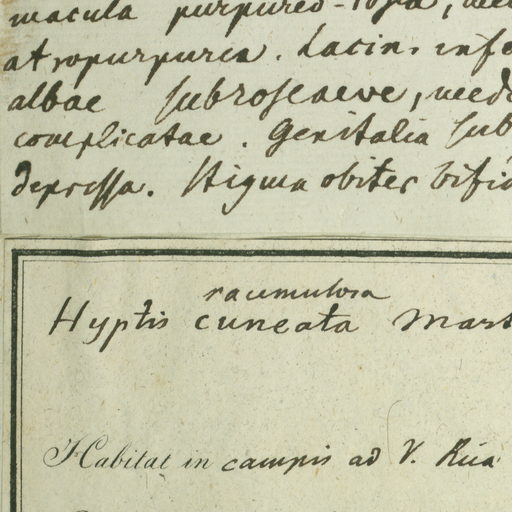 macula purpureo-rosa, med
atropurpurea. Lacin. infe
albae subroseaeve, med
complicatae. Genitalia sub
depressa. Stigma obiter bifid
racemulosa
Hyptis cuneata Mart
Habitat in campis ad V. Rica